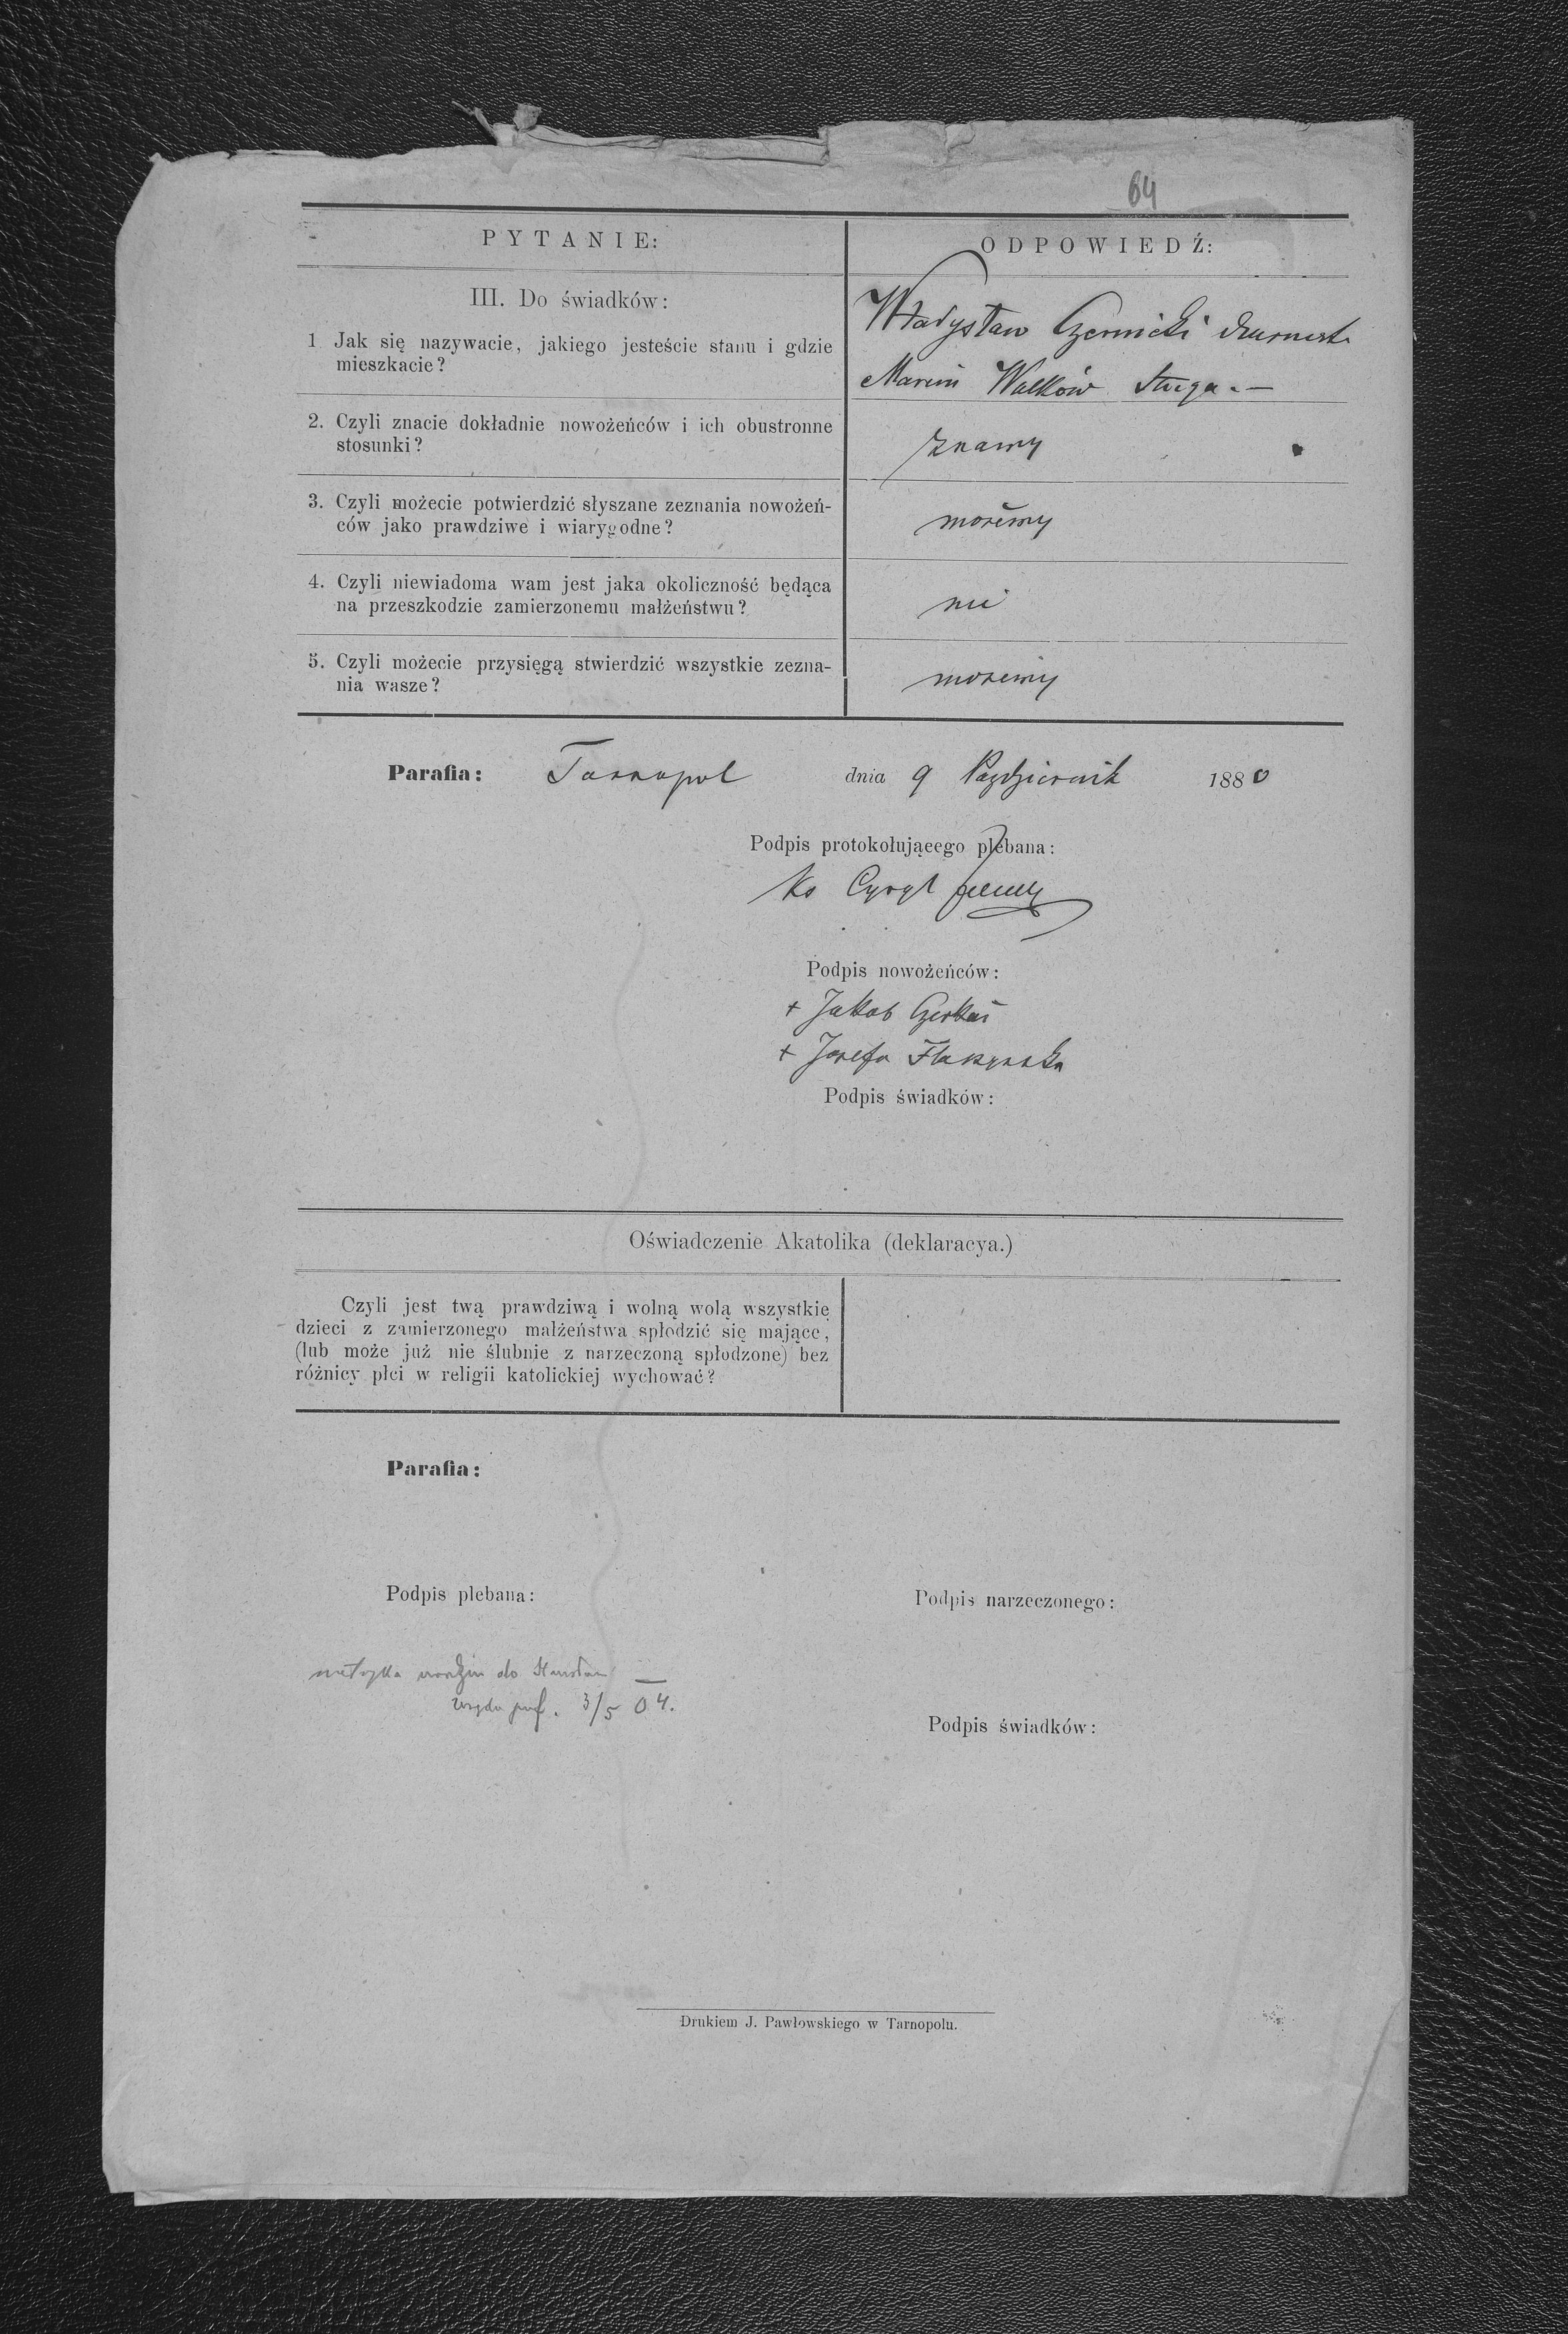 64
PYTANIE:
ODPOWIEDŹ:
III. Do świadków:
1 Jak się nazywacie, jakiego jesteście stanu i gdzie
mieszkacie?
Władysław Czernicki
Marcin Walków sługa.—
2. Czyli znacie dokładnie nowożeńców i ich obustronne
stosunki?
znamy
3. Czyli możecie potwierdzić słyszane zeznania nowożeń-
ców jako prawdziwe i wiarygodne?
możemy
4. Czyli niewiadoma wam jest jaka okoliczność będąca
na przeszkodzie zamierzonemu małżeństwu?
nie
5. Czyli możecie przysięgą stwierdzić wszystkie zezna-
nia wasze?
możemy
Parafia: Tarnopol dnia 9 Październik 1880
Podpis protokołująeego plebana:
Ks Cyryl
Podpis nowożeńców:
+ Jakob Czerkas
+ Józefa
Podpis świadków:
Oświadczenie Akatolika (deklaracya.)
Czyli jest twą prawdziwą i wolną wolą wszystkie
dzieci z zamierzonego małżeństwa spłodzić się mające,
(lub może już nie ślubnie z narzeczoną spłodzone) bez
różnicy płci w religii katolickiej wychować?
Parafia:
Podpis plebana:
Podpis narzeczonego:
metryka urodzin do
3/5 04.
Podpis świadków:
Drukiem J. Pawłowskiego w Tarnopolu.